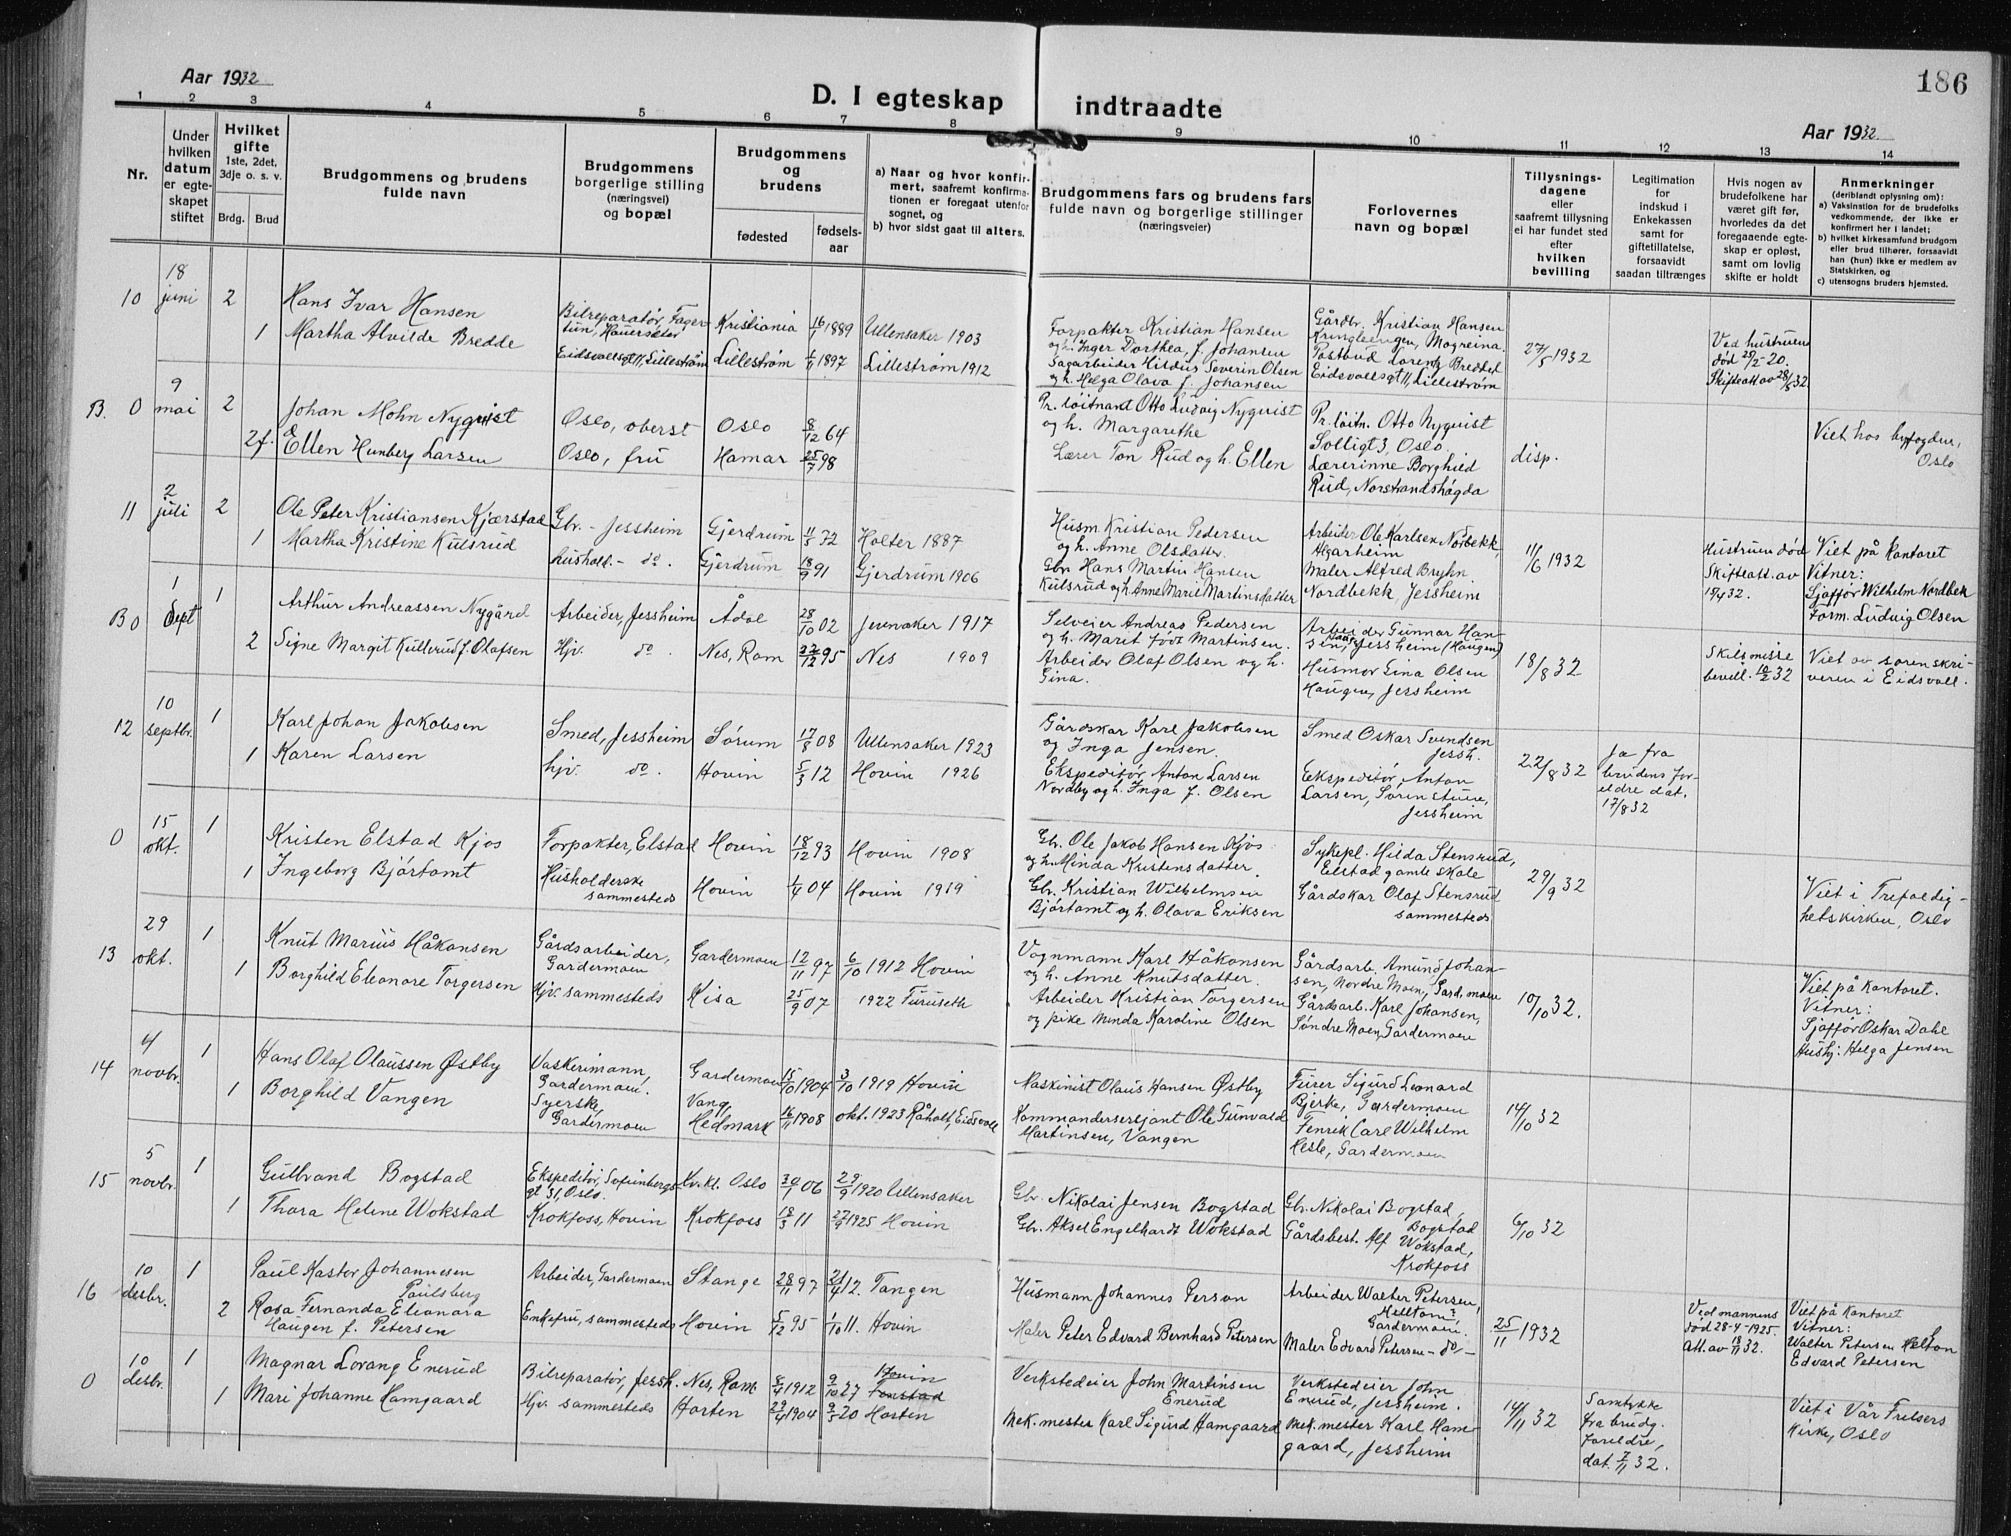 Aar 1932
D. I egteskap indtraadte
186
Aar 1932
1 2 3 4 5 6 7 8 9 10 11 12 13 14
Nr.
Under hvilken datum er egteskapet stiftet
Hvilket gifte
1ste, 2det, 3dje o. s. v.
Brdg. Brud
Brudgommens og brudens fulde navn
Brudgommens borgerlige stilling (næringsvei) og bopæl
Brudgommens og brudens
fødested
fødselsaar
a) Naar og hvor konfirmert, saafremt konfirmationen er foregaat utenfor sognet, og
b) hvor sidst gaat til alters.
Brudgommens fars og brudens fars fulde navn og borgerlige stillinger (næringsveier)
Forlovernes navn og bopæl
Tillysningsdagene eller saafremt tillysning ei har fundet sted efter hvilken bevilling
Legitimation for indskud i Enkekassen samt for giftetillatelse, forsaavidt saadan tiltrænges
Hvis nogen av brudefolkene har været gift før, hvorledes da det foregaaende egteskap er opløst, samt om lovlig skifte er holdt
Anmerkninger
(deriblandt oplysning om):
a) Vaksination for de brudefolks vedkommende, der ikke er konfirmert her i landet;
b) hvilket kirkesamfund brudgom eller brud tilhører, forsaavidt han (hun) ikke er medlem av Statskirken, og
c) utensogns bruders hjemsted.
10 18 juni 2 Hans Ivar Hansen
1 Martha Alvilde Bredde
Bilreparatør, Fagertun, Hauerseter
Eidsvollsgt 11, Lillestrøm
Kristiania 16/1 1889 Ullensaker 1903
Lillestrøm 1897 Lillestrøm 1912
Forpakter Kristian Hansen
og h. Inger Dorthea, f. Johansen
Sagarbeider Hildus Severin Olsen
og h. Helga Olava f. Johansen
Gårdbr. Kristian Hansen
Kringleengen, Mogreina
Postbud Lorentz Bredded
Eidsvollsgt 11, Lillestrøm
27/5 1932
Ved hustruens
død 29/2-20.
Skifteatt av 28/5 32
B. 0 9 mai 2 Johan Mohn Nyquist
2f. Ellen Hunberg Larsen
Oslo, oberst Oslo 8/12 64
Oslo, fru Hamar 25/7 98
Pr. løitnant Otto Ludvig Nyquist
og h. Margarethe
Lærer Ton Rud og h. Ellen
Pr. løitn. Otto Nyquist
Solligt 3, Oslo
Lærerinne Borghild
Rud, Norstrandshøgda
disp.
Viet hos byfogden,
Oslo
11 2 juli 2 Ole Peter Kristiansen Kjærstad
1 Martha Kristine Kulsrud
Gbr. - Jessheim Gjerdrum 11/5 72 Holter 1887
hushold. - do. Gjerdrum 18/9 91 Gjerdrum 1906
Husm Kristian Pedersen
og h. Anne Olsdatter.
Gbr. Hans Martin Hansen
Kulsrud og h. Anne Marie Martinsdatter
Arbeider Ole Karlsen Norbekk,
Algarheim
Maler Alfred Bryhn
Nordbekk, Jessheim
11/6 1932
Hustruen død
Skifteatt. av
Viet på kontoret
Vitner:
Sjaffør Wilhelm Nordbek
Form. Ludvig Olsen
B 0 1 sept 1 Arthur Andreassen Nygård
2 Signe Margit Kullerud f. Olafsen
Arbeider, Jessheim Ådal 28/10 02 Jevnaker 1917
Hjv. do. Nes, Rom 22/12 95 Nes 1909
Selveier Andreas Pedersen
og h. Marit født Martinsen.
Arbeider Olaf Olsen og h.
Gina.
Arbeider Gunnar Hansen, Jessheim (Haugen)
Husmor Gina Olsen
Haugen, Jessheim
18/8 32
Skilsmisse
bevill. 10/2 32
Viet av sorenskriveren i Eidsvoll.
12 10 septbr. 1 Karl Johan Jakobsen
1 Karen Larsen
Smed, Jessheim Sørum 17/8 08 Ullensaker 1923
hjv. do. Hovin 5/3 12 Hovin 1926
Gårdskar Karl Jakobsen
og Inga Jensen.
Ekspeditør Anton Larsen
Nordby og h. Inga f. Olsen
Smed Oskar Svendsen
Jessh.
Eekspeditør, Anton
Larsen, Sørenstuen,
Jessheim
22/8 32
Ja fra
brudens foreldre dat.
17/8 32
0 15 okt. 1 Kristen Elstad Kjos
1 Ingeborg Bjørtomt
Forpakter, Elstad Hovin 18/12 93 Hovin 1908
Husholderske
sammesteds Hovin 04 Hovin 1919
Gbr. Ole Jakob Hansen Kjos
og h. Minda Kristensdatter.
Gbr. Kristian Wilhelmsen
Bjørtomt og h. Olava Eriksen
Sykepl. Hilda Stensrud,
Elstad gamle skole
Gårdskar Olaf Stensrud
sammesteds
29/9 32
Viet i Trefoldighetskirken, Oslo
13 29 okt. 1 Knut Marius Håkonsen
1 Borghild Eleonore Torgersen
Gårdsarbeider,
Gardermoen
Hjv. sammesteds
Gardermoen 12/11 97 6/10 1912 Hovin
Kisa 25/9 07 1922 Furuseth
Vognmann Karl Håkonsen
og h. Anne Knutsdatter.
Arbeider Kristian Torgersen
og pike Minda Karoline Olsen
Gårdsarb. Amund Johansen, Nordre Moen, Gard.moen
Gårdsarb. Karl Johansen,
Søndre Moen, Gardermoen
10/10 32.
Viet på kontoret.
Vitner:
Sjaffør Oskar Dahl
Hushj: Helga Jensen
14 4 novbr. 1 Hans Olaf Olaussen Østby
1 Borghild Vangen
Vaskerimann,
Gardermoen.
Syerske,
Gardermoen
Gardermoen 15/10 1904 3/10 1919 Hovin
Vang,
Hedmark 16/11 1908 okt. 1923 Råholt, Eidsvoll
Maskinist Olaus Hansen Østby
Kommandersersjant Ole Gunvald
Martinsen, Vangen
Furer Sigurd Leonard
Bjerke, Gardermoen
Fenrik Carl Wilhelm
Hesle, Gardermoen
14/10 32
15 5 novbr. 1 Gulbrand Bogstad
1 Thora Helene Wokstad
Ekspeditør, Sofienbergsgt 31, Oslo.
Krokfoss, Hovin
Kv.kl. Oslo 30/1 06 29/9 1920 Ullensaker
Krokfoss 18/3 11 27/9 1925 Hovin
Gbr. Nikolai Jensen Bogstad
Gbr. Aksel Engelhardt Wokstad
Gbr. Nikolai Bogstad,
Bogstad
Gårdsbest. Alf Wokstad,
Krokfoss
6/10 32
16 10 desbr. 1 Paul Kastor Johannesen
Paulsberg
2 Rosa Fernanda Eleonora
Haugen f. Petersen
Arbeider, Gardermoen Stange 28/11 97 21/4 12. Tangen
Enkefru, sammesteds Hovin 5/12 95 1/10 11. Hovin
Husmann Johannes Person
Maler Peter Edvard Bernhard Petersen
Arbeider Walter Petersen,
Gardermoen.
Maler Edvard Petersen - do -
25/11 1932
Ved mannens
død 28-4-1925.
Att. av 18/11 32.
Viet på kontoret
Vitner:
Walter Petersen Helton
Edvard Petersen
0 10 desbr. 1 Magnar Lovang Enerud
1 Mari Johanne Homgaard
Bilreparatør, Jessh. Nes, Rom. 8/4 1912 9/10 27 Hovin
Hjv. sammesteds Horten 29/4 1904 9/5 20 Horten
Verkstedeier John Martinsen
Enerud
Mek. mester Karl Sigurd Homgaard
Verkstedeier John
Enerud, Jessheim.
Mek. mester Karl Homgaard, Jessheim
14/11 32
Samtykke
fra brudg.
foreldre,
dat. 7/11 32.
Viet i Vår Frelsers
Kirke, Oslo